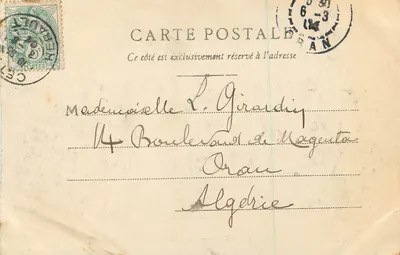 CARTE POSTALE
Ce côté est exclusivement réservé à l'adresse
6 - 3
04
ORAN
HERAULT
Mademoiselle L. Girardin
14 Boulevard de Magenta
Oran
Algérie